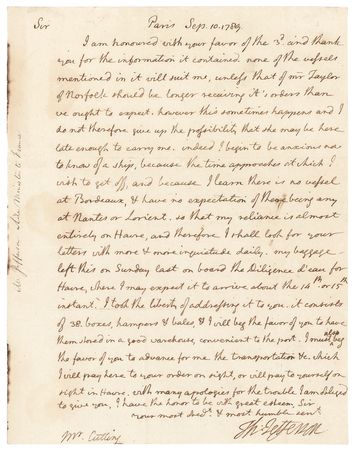 Sir Paris Sep. 10. 1789.
I am honoured with your favor of the 3d. and thank
you for the information it contained. none of the vessels
mentioned in it will suit me, unless that of mr Taylor
of Norfolk should be longer receiving it's orders than
we ought to expect. however this sometimes happens and I
do not therefore give up the possibility that she may be here
late enough to carry me. indeed I begin to be anxious now
to know of a ship, because the time approaches at which I
wish to get off, and because I learn there is no vessel
at Bordeaux, & have no expectation of there being any
at Nantes or Lorient. so that my reliance is almost
entirely on Havre, and therefore I shall look for your
letters with more & more inquietude daily. my baggage
left this on Sunday last on board the Diligence d'eau for
Havre, where I may expect it to arrive about the 14th or 15th
instant. I took the liberty of addressing it to you. it consists
of 38. boxes, hampers & bales, & I will beg the favor of you to have
them stored in a good warehouse, convenient to the port. I must also beg
the favor of you to advance for me the transportation &c. which
I will pay here to your order on sight, or will pay to yourself on
sight in Havre. with many apologies for the trouble I am obliged
to give you, I have the honor to be with great esteem, Sir
your most obedt. & most humble servt.
Th: Jefferson
Mr. Cutting
Mr Jefferson late Minister to France